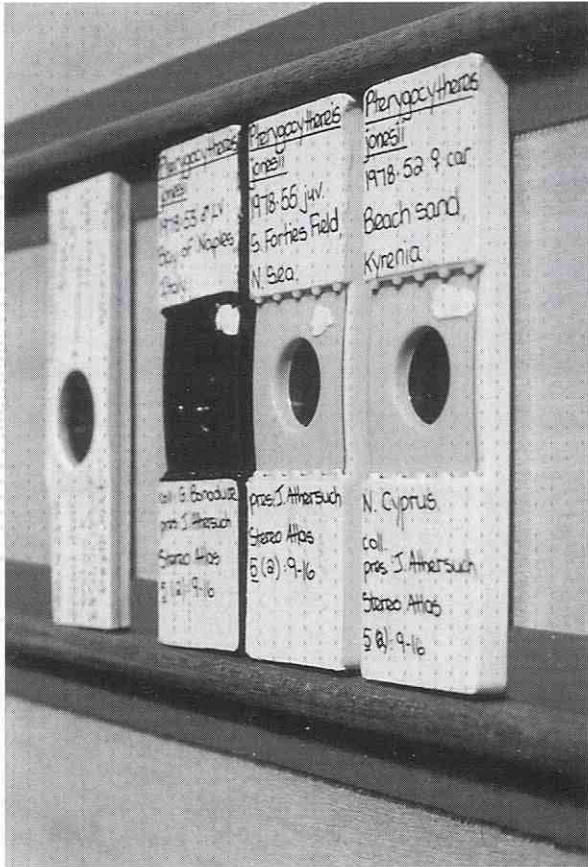 Pterygocythereis
jonesii
1978.53 ♂ LV.
Bay of Naples,
Italy.
coll. G. Bonaduce
pres. J. Athersuch
Stereo Atlas
5 (2): 9-16
Pterygocythereis
jonesii
1978.55 juv.
S. Forties Field,
N. Sea.
pres. J. Athersuch
Stereo Atlas
5 (2): 9-16
Pterygocythereis
jonesii
1978.52 ♀ car.
Beach sand,
Kyrenia
N. Cyprus.
coll.
pres J. Athersuch
Stereo Atlas
5 (2): 9-16